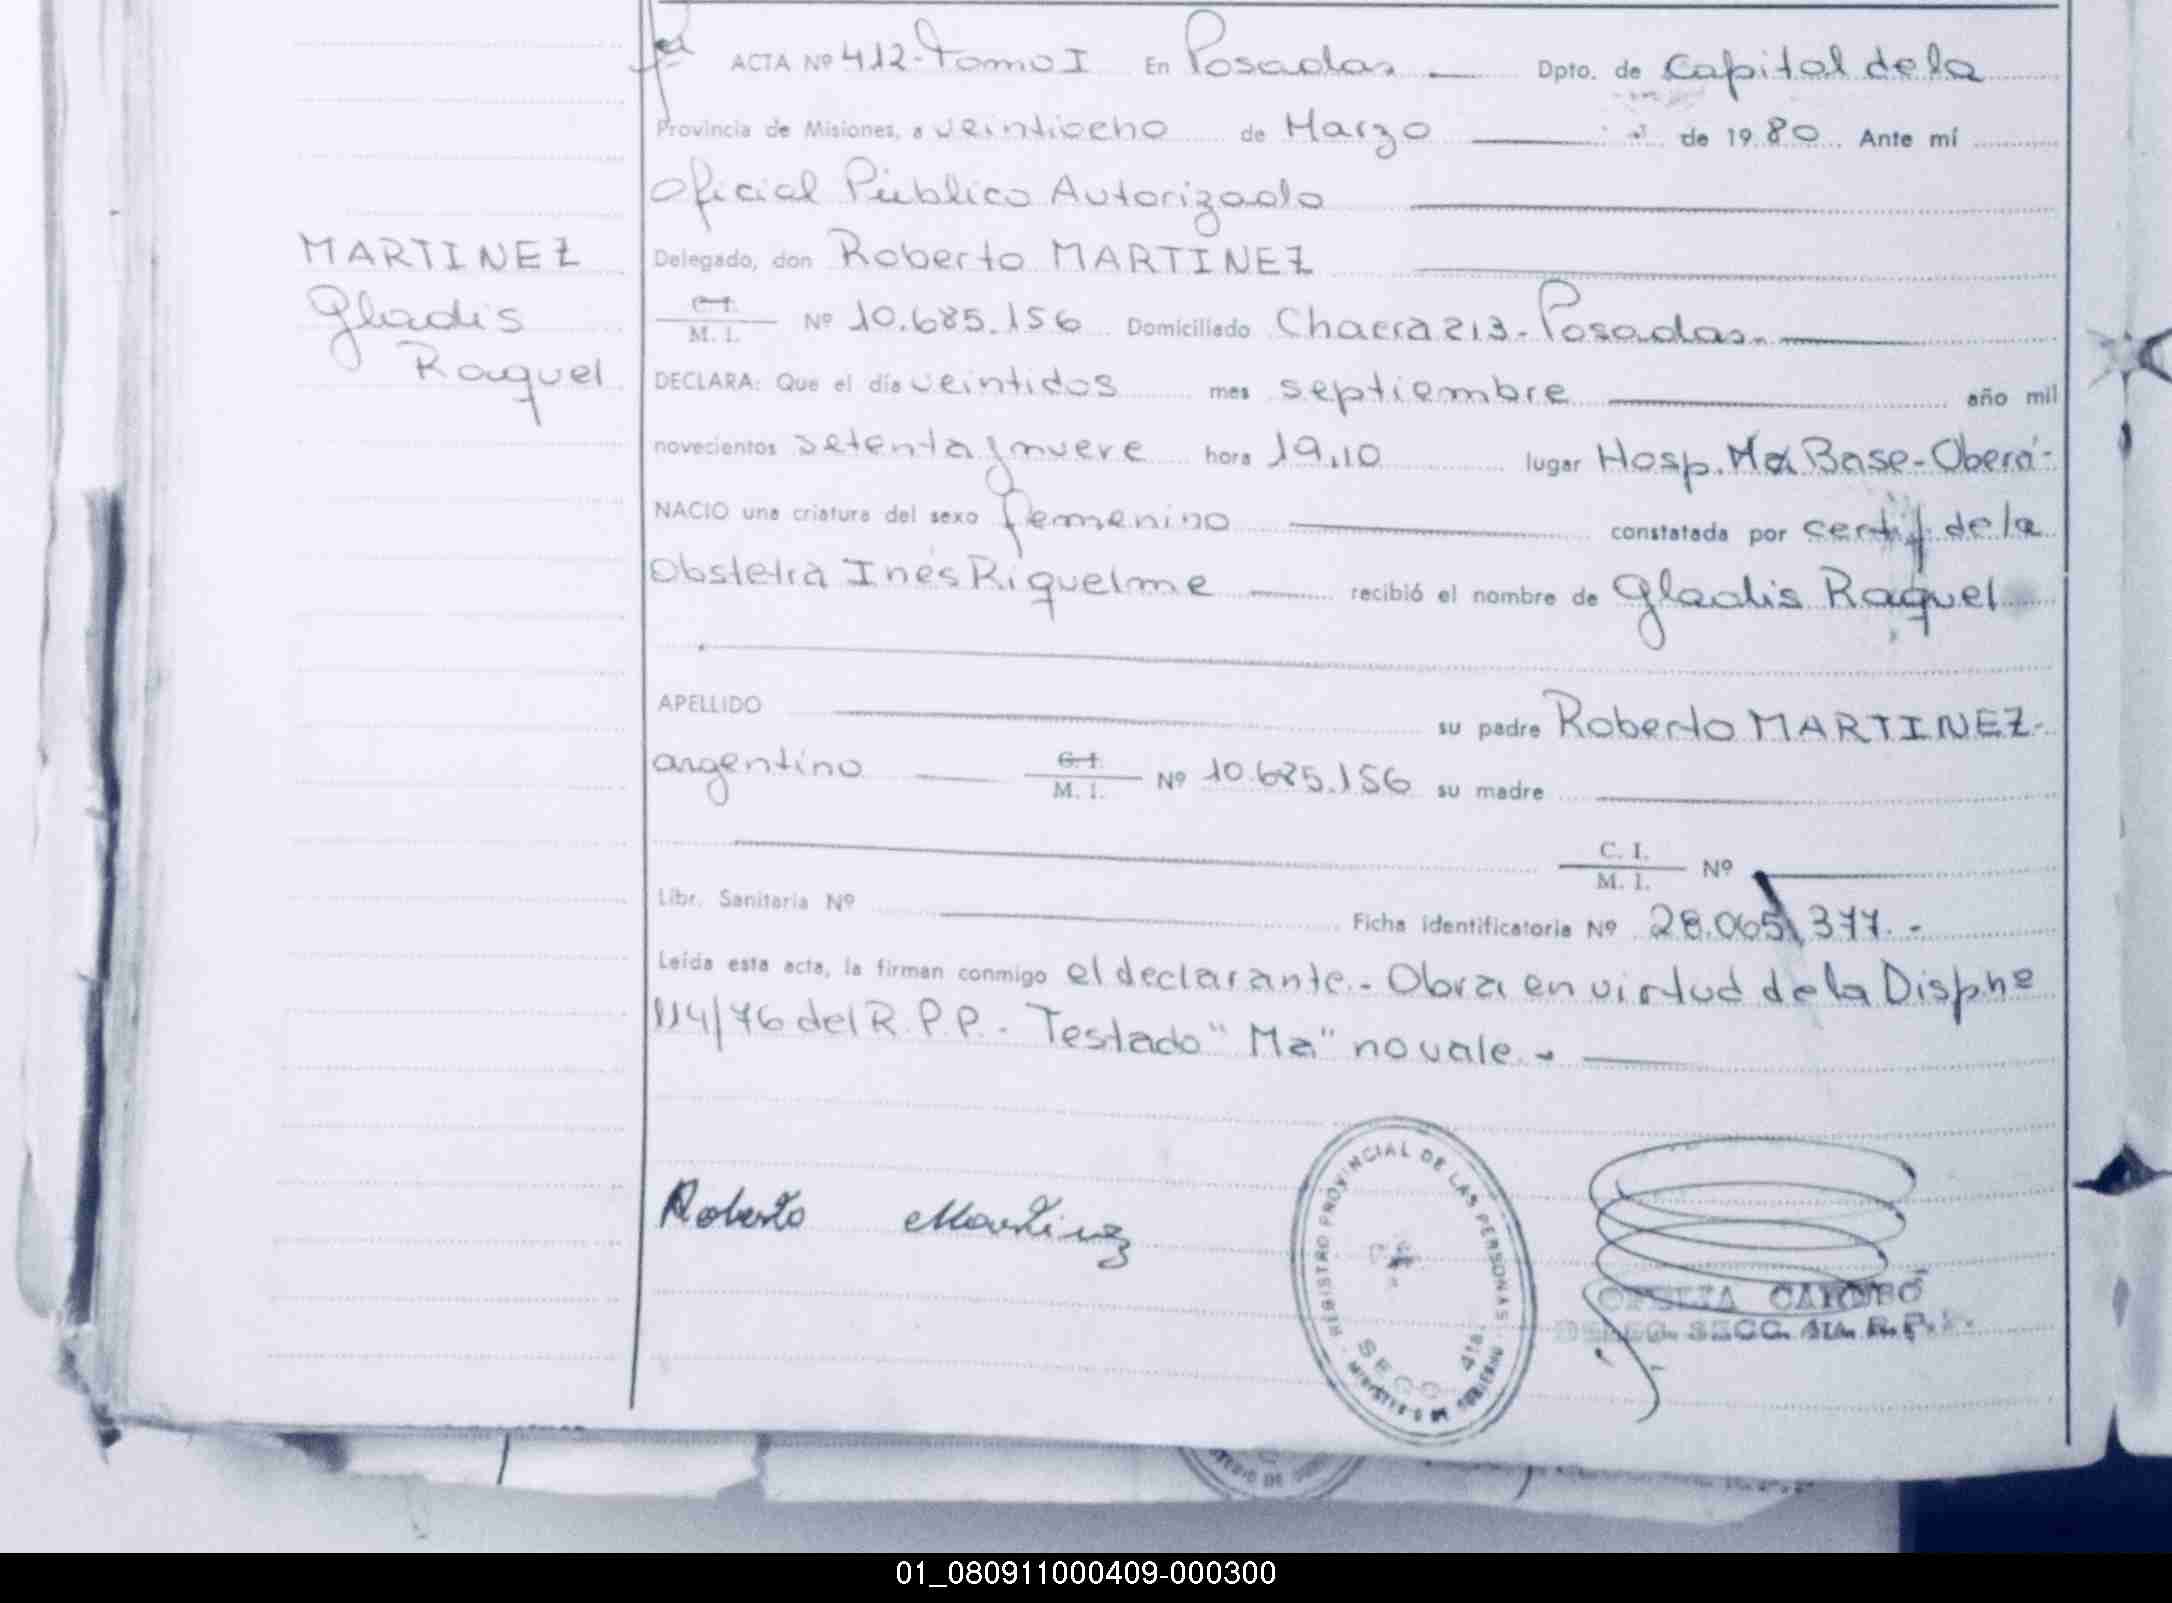 ACTA Nº 412-Tomo I En Posadas. Dpto. de Capital de la
Provincia de Misiones, a veintiocho de Marzo de 1980 Ante mí
Oficial Público Autorizado
MARTINEZ
Delegado, don Roberto MARTINEZ
Gladis
C. I.
M. I.
Nº 10.685.156 Domiciliado Chacra 213-Posadas.
Raquel
DECLARA: Que el día veintidos mes septiembre año mil
novecientos setenta y nueve hora 19,10 lugar Hosp. Ma Base-Oberá-
NACIO una criatura del sexo femenino constatada por certif. de la
obstetra Inés Riquelme recibió el nombre de Gladis Raquel
APELLIDO su padre Roberto MARTINEZ-
argentino C. I. M. I. Nº 10.685.156 su madre
C. I. M. I. Nº
Libr. Sanitaria Nº Ficha identificatoria Nº 28.065.377.-
Leída esta acta, la firman conmigo el declarante.- Obra en virtud de la Disp Nº
114/76 del R.P.P.- Testado "Ma" no vale.-
Roberto Martinez
REGISTRO PROVINCIAL DE LAS PERSONAS
SECC. 41a.
OFELIA
DELEG. SECC. 41a. R.P.P.
01_080911000409-000300